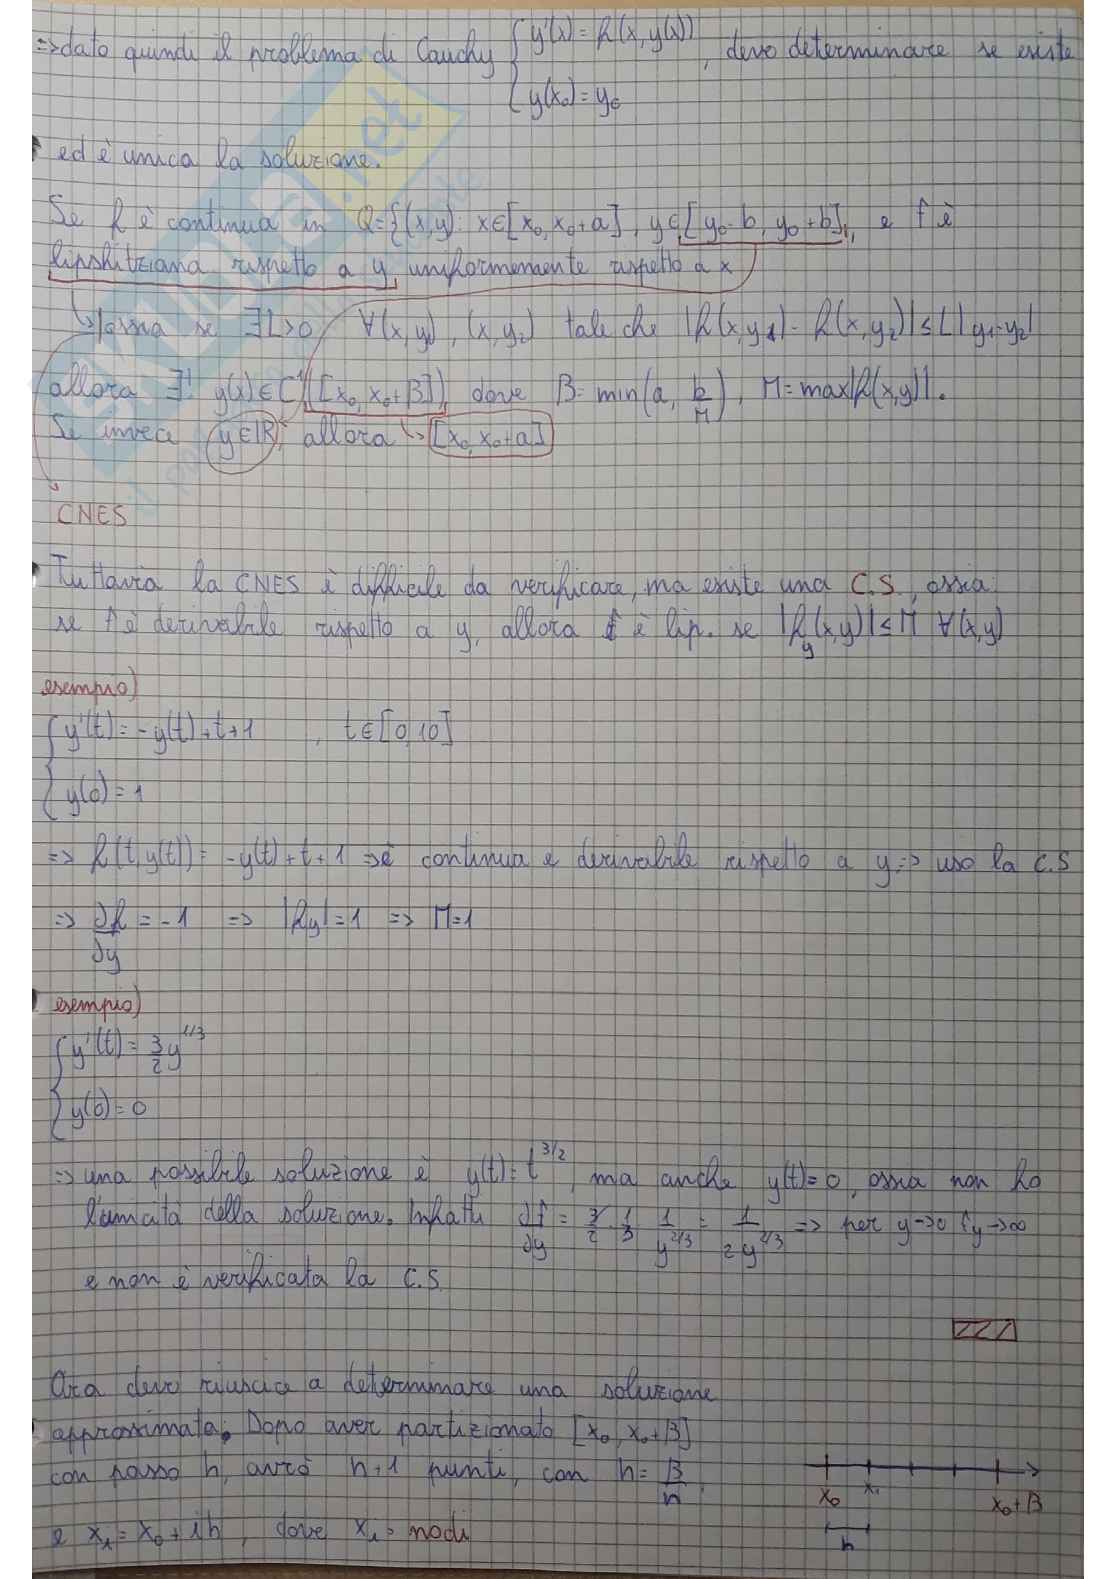 => dato quindi il problema di Cauchy { y'(x) = f(x, y(x)) , devo determinare se esiste
y(x₀) = y₀
ed è unica la soluzione.
Se f è continua in Q={(x,y): x∈[x₀, x₀+a], y∈[y₀-b, y₀+b]}, e f è
lipshitziana rispetto a y, uniformemente rispetto a x
↳ ossia se ∃L>0 ∀(x,y₁), (x,y₂) tale che |f(x,y₁) - f(x,y₂)| ≤ L|y₁-y₂|
allora ∃! y(x)∈C¹([x₀, x₀+β]) dove β = min(a, b/M), M = max|f(x,y)|.
Se invece y∈ℝ, allora ↳ [x₀, x₀+a]
CNES
Tuttavia la CNES è difficile da verificare, ma esiste una C.S, ossia
se f è derivabile rispetto a y, allora f è lip. se |f_y(x,y)| ≤ M ∀(x,y)
esempio)
{ y'(t) = -y(t)+t+1 , t∈[0,10]
y(0) = 1
=> f(t,y(t)) = -y(t)+t+1 => è continua e derivabile rispetto a y => uso la C.S
=> ∂f/∂y = -1 => |f_y| = 1 => M=1
esempio)
{ y'(t) = 3/2 y^1/3
y(0) = 0
=> una possibile soluzione è y(t) = t^3/2, ma anche y(t)=0, ossia non ho
l'unicità della soluzione. Infatti ∂f/∂y = 3/2 · 1/3 1/y^2/3 = 1/2y^2/3 => per y->0 f_y->∞
e non è verificata la C.S
Ora devo riuscire a determinare una soluzione
approssimata. Dopo aver partizionato [x₀, x₀+β]
con passo h, avrò n+1 punti, con h = β/n,
x₀ x₁ x₀+β
e xᵢ = x₀ + ih, dove xᵢ = nodi
h